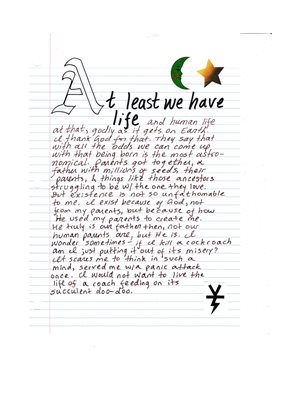 At least we have
life and human life
at that, godly as it gets on Earth.
I thank God for that. They say that
with all the odds we can come up
with that being born is the most astro-
nomical. Parents got together, a
father with millions of seeds, their
parents, & things like those ancestors
struggling to be w/ the one they love.
But existence is not so unfathomable
to me. I exist because of God, not
from my parents, but because of how
He used my parents to create me.
He truly is our father then, not our
human parents are, but He is. I
wonder sometimes- if I kill a cockroach
am I just putting it out of its misery?
It scares me to think in such a
mind, served me w/a panic attack
once. I would not want to live the
life of a coach feeding on its
succulent doo-doo.